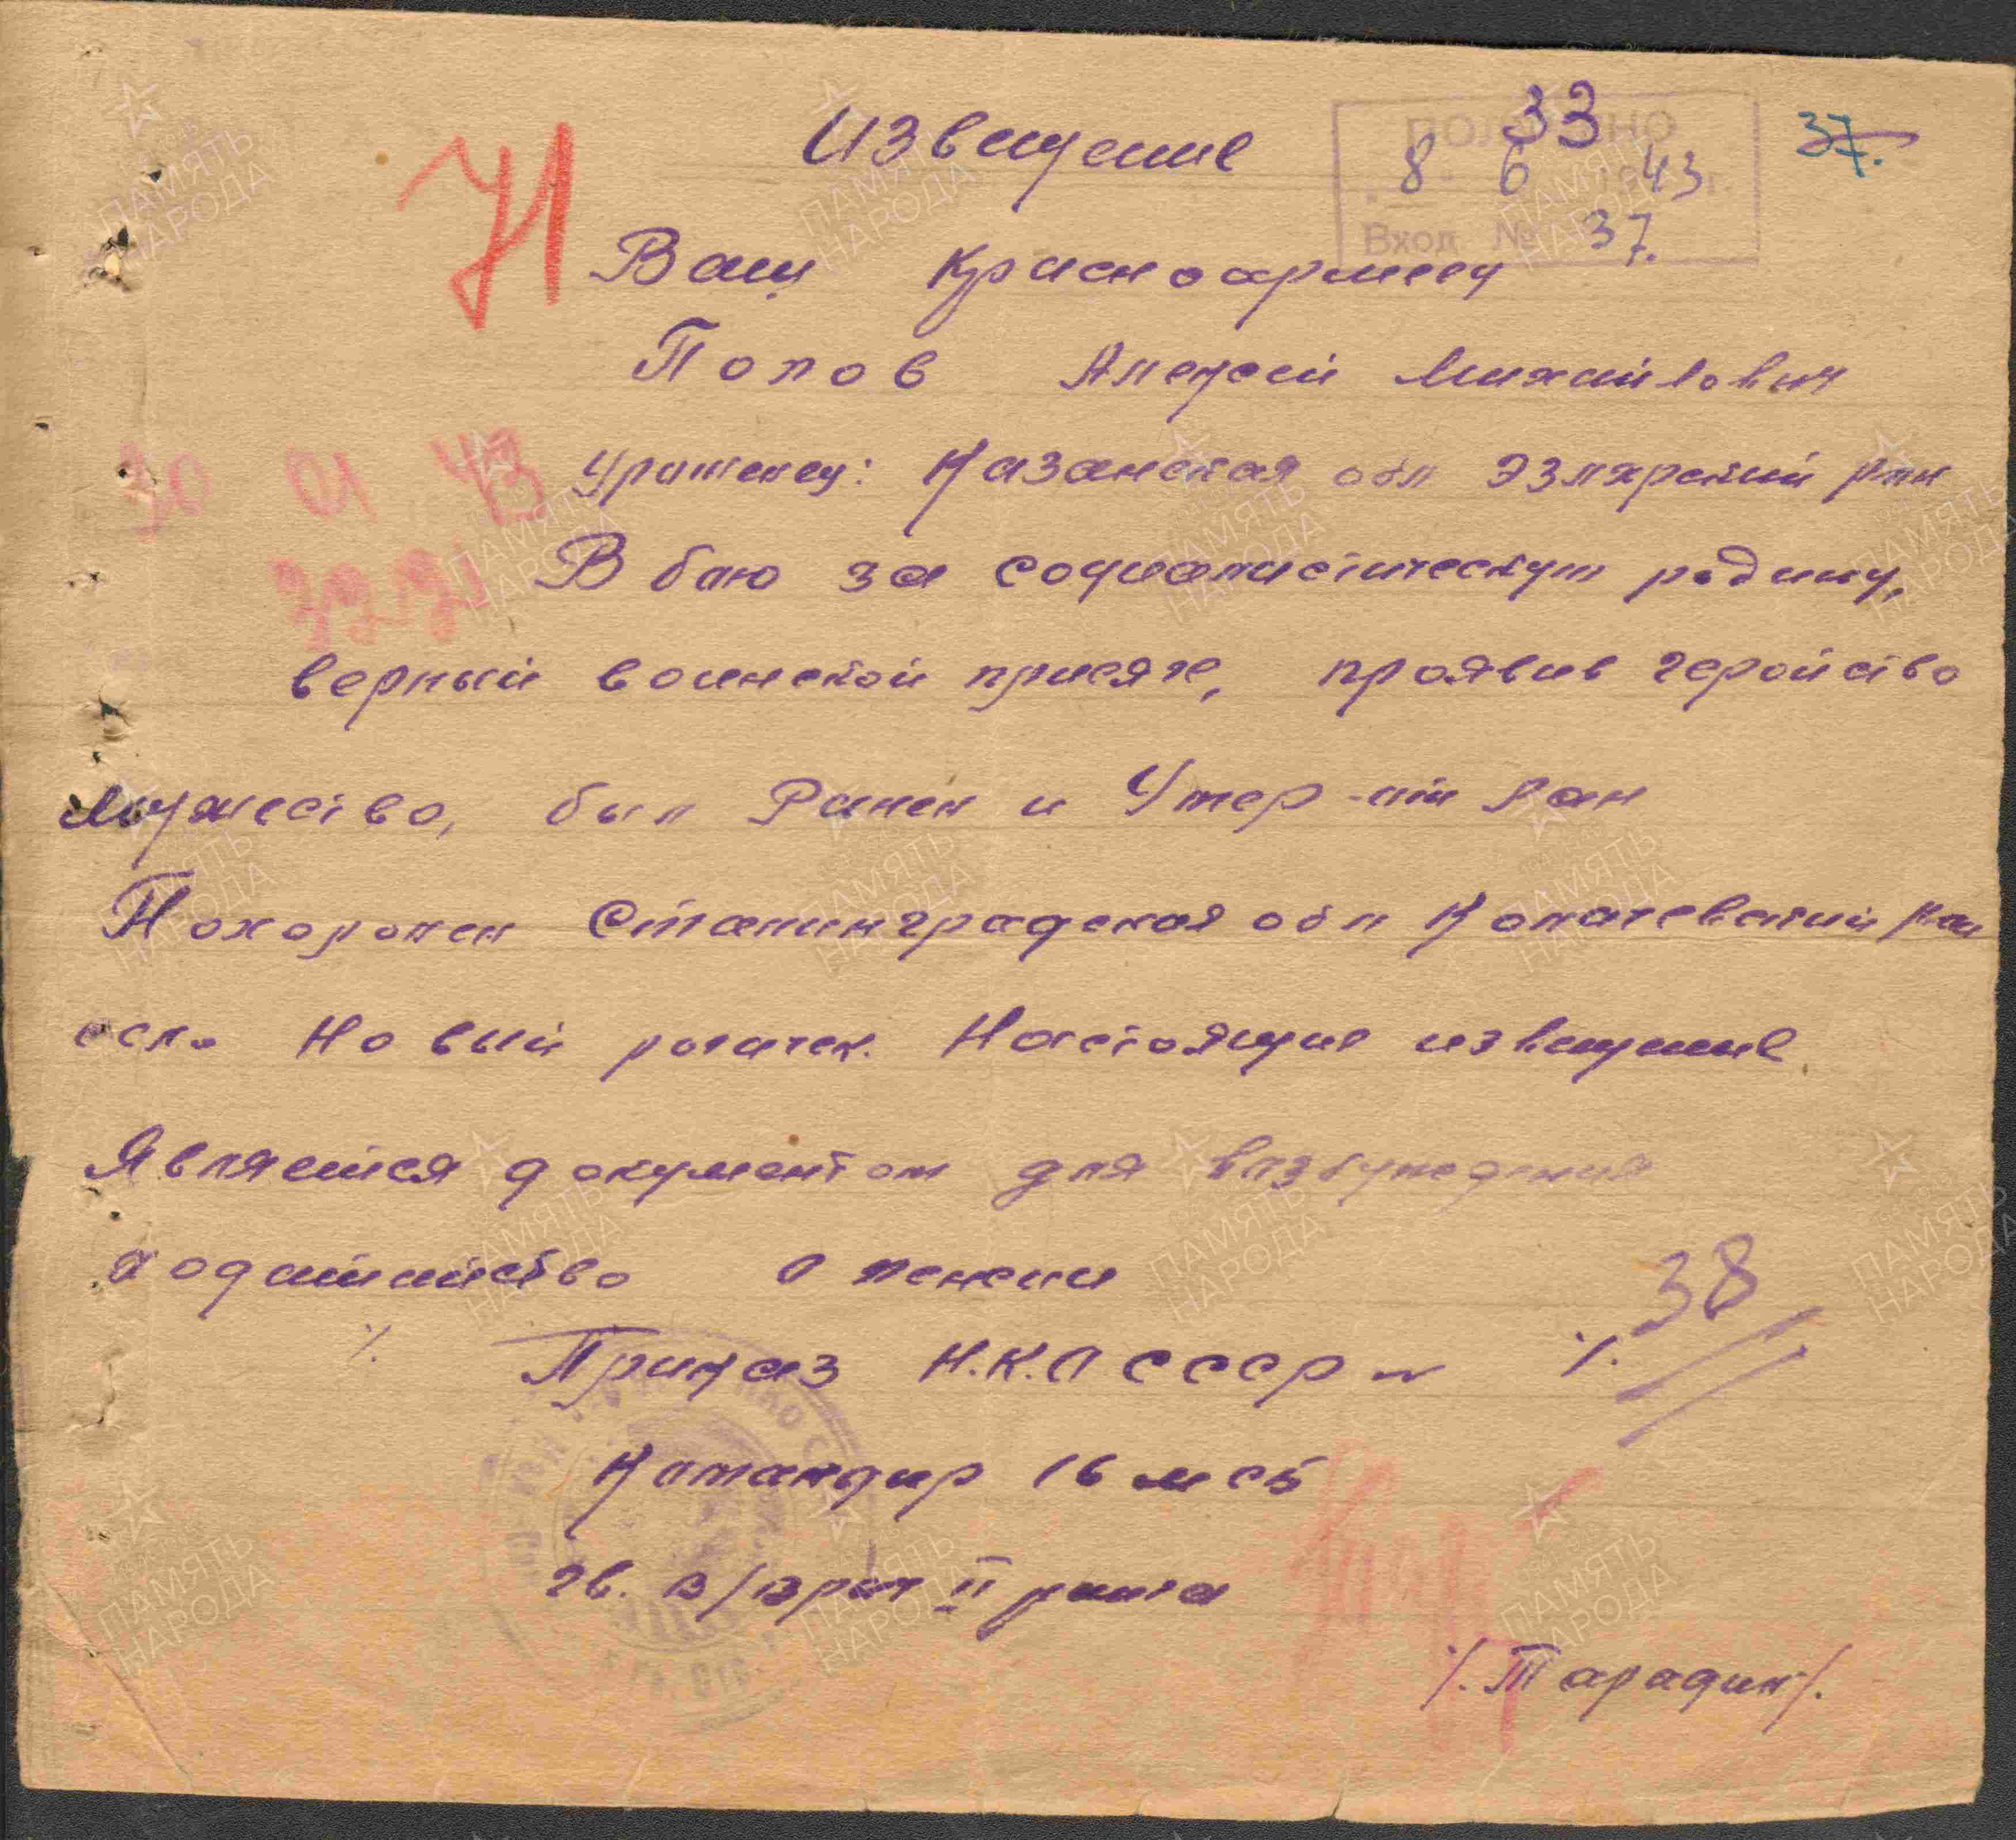 Извещение
33
37.
ПОЛУЧЕНО
8 6 1943 г.
Вход № 37.
Ваш красноармеец
Попов Алексей Михайлович
30 01 43
Уроженец: Казанская обл Эзлярский рон
В баю за социалистическую родину,
верный воинской присяге, проявив геройство
мужество, был Ранен и Умер от ран
Похоронен Сталинградская обл Калачевский рон
село Новый рогачек. Настоящие извещение
Является документом для вазбуждения
ходатайство о пенсии
38
Приказ Н.К.О СССР
Командир 16 мсб
гв. в/врач II ранга
/.Тарадин/.
ПАМЯТЬ НАРОДА